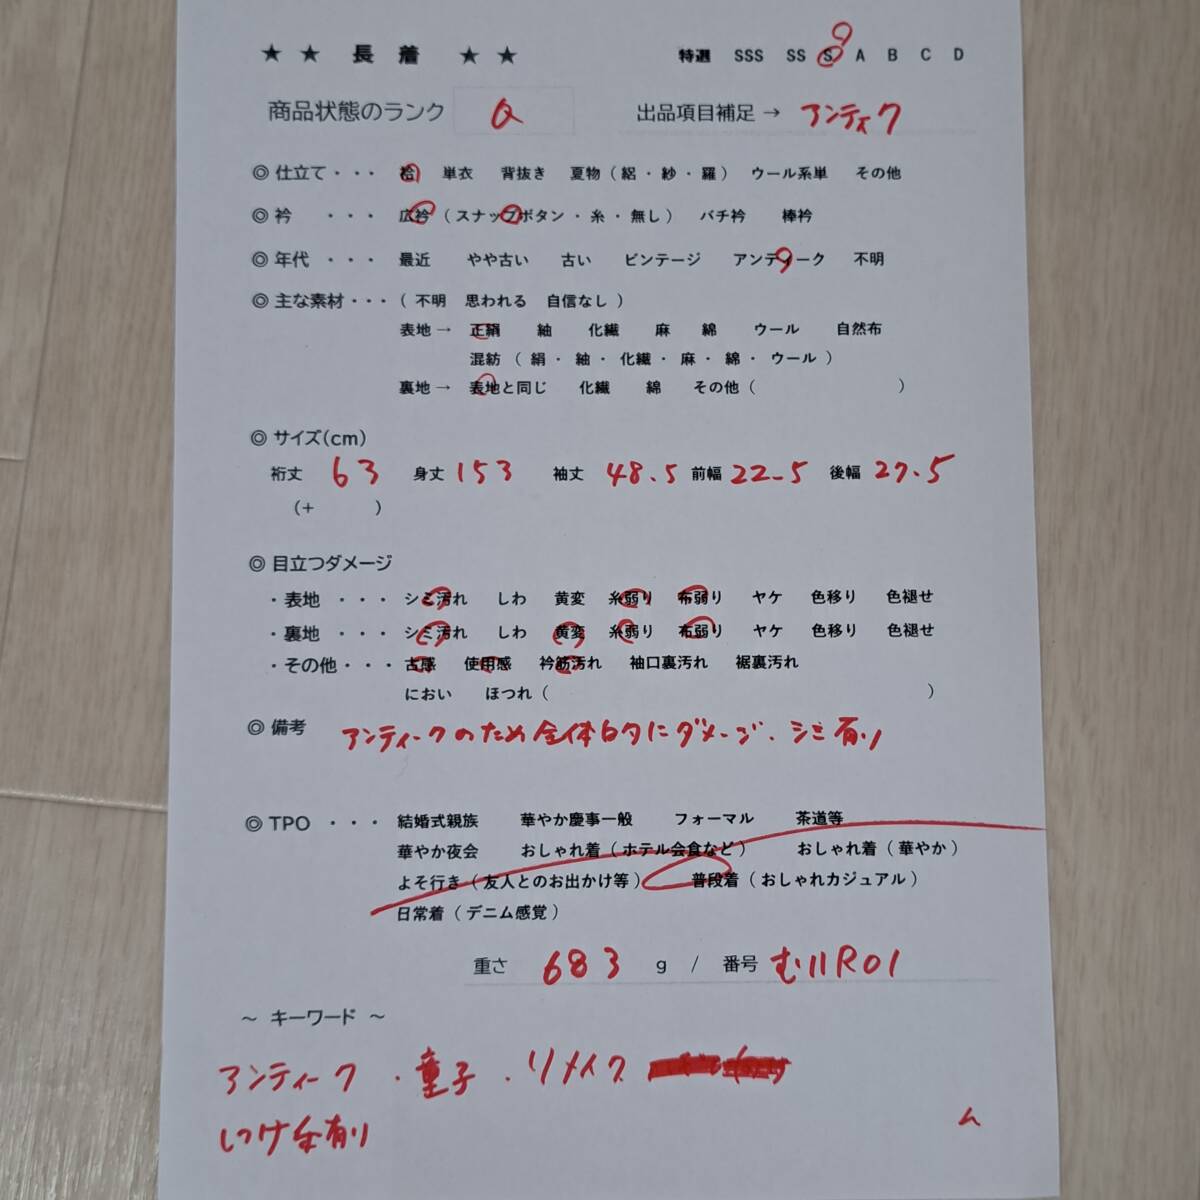 ★ ★ 長 着 ★ ★ 特選 SSS SS S A B C D
商品状態のランク a 出品項目補足 → アンティク
◎ 仕立て ・・・ 袷 単衣 背抜き 夏物 ( 絽 ・ 紗 ・ 羅 ) ウール系単 その他
◎ 衿 ・・・ 広衿 ( スナップボタン ・ 糸 ・ 無し ) バチ衿 棒衿
◎ 年代 ・・・ 最近 やや古い 古い ビンテージ アンティーク 不明
◎ 主な素材・・・ ( 不明 思われる 自信なし )
表地 → 正絹 紬 化繊 麻 綿 ウール 自然布
混紡 ( 絹 ・ 紬 ・ 化繊 ・ 麻 ・ 綿 ・ ウール )
裏地 → 表地と同じ 化繊 綿 その他 ( )
◎ サイズ(cm)
裄丈 63 身丈 153 袖丈 48.5 前幅 22.5 後幅 27.5
(+ )
◎ 目立つダメージ
・表地 ・・・ シミ汚れ しわ 黄変 糸弱り 布弱り ヤケ 色移り 色褪せ
・裏地 ・・・ シミ汚れ しわ 黄変 糸弱り 布弱り ヤケ 色移り 色褪せ
・その他・・・ 古感 使用感 衿筋汚れ 袖口裏汚れ 裾裏汚れ
におい ほつれ ( )
◎ 備考 アンティークのため全体的にダメージ、シミ有り
◎ TPO ・・・ 結婚式親族 華やか慶事一般 フォーマル 茶道等
華やか夜会 おしゃれ着 ( ホテル会食など ) おしゃれ着 ( 華やか )
よそ行き ( 友人とのお出かけ等 ) 普段着 ( おしゃれカジュアル )
日常着 ( デニム感覚 )
重さ 683 g / 番号 む11R01
～ キーワード ～
アンティーク ・ 童子 ・ リメイク
しつけ糸有り
ム